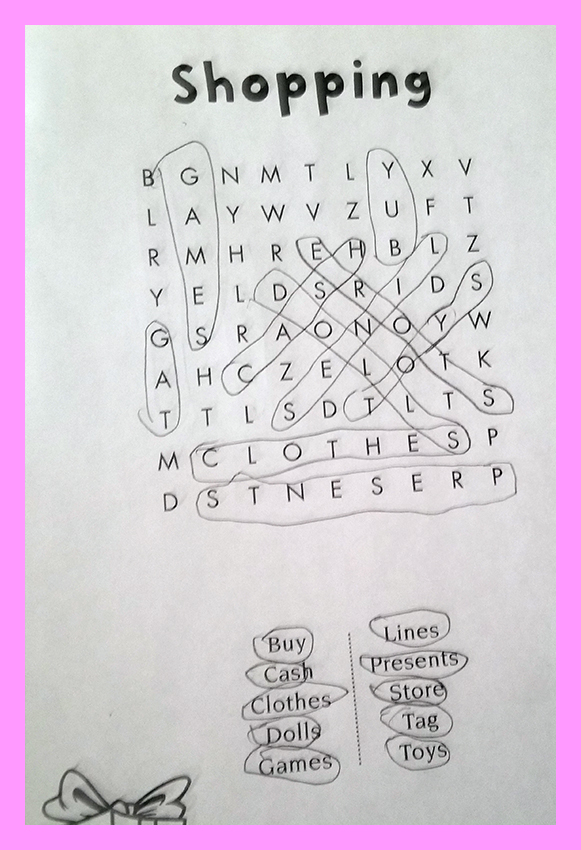 Shopping
B G N M T L Y X V
L A Y W V Z U F T
R M H R E H B L Z
Y E L D S R I D S
G S R A O N O Y W
A H C Z E L O T K
T T L S D T L T S
M C L O T H E S P
D S T N E S E R P
Buy
Cash
Clothes
Dolls
Games
Lines
Presents
Store
Tag
Toys